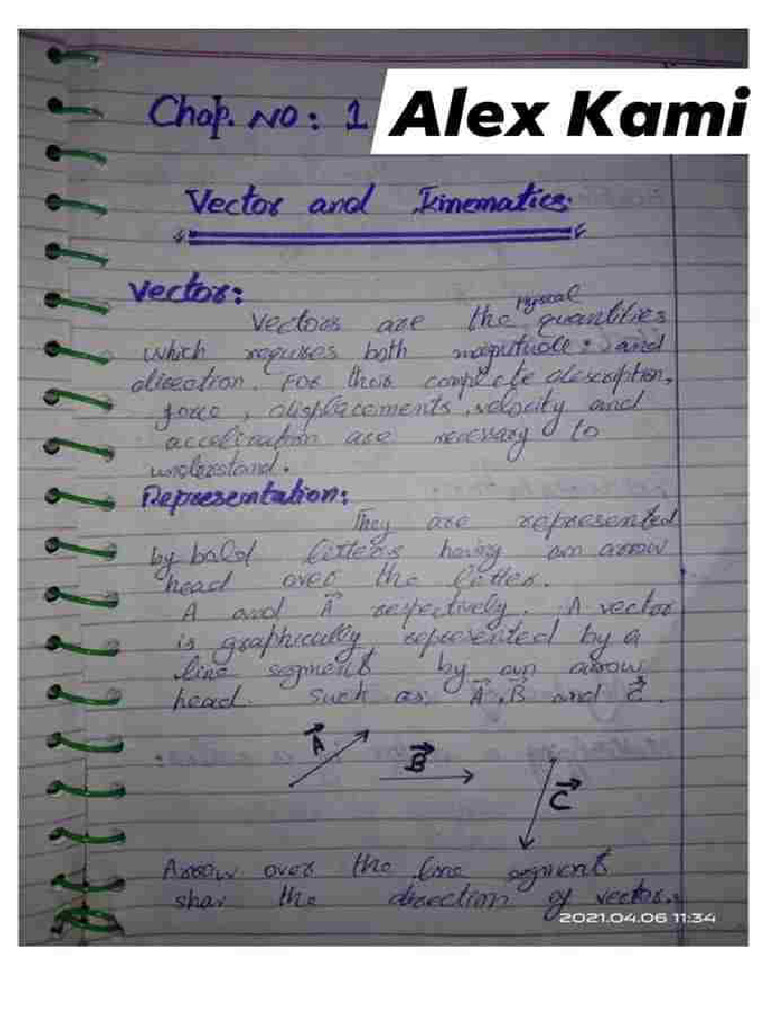 Chap. NO: 1
Alex Kami
Vector and Kinematics.
Vector:
Vectors are the physical quantities
which requires both magnitude and
direction. For their complete description,
force, displacements, velocity and
acceleration are necessary to
understand.
Representation:
They are represented
by bold letters having an arrow
head over the letter.
A and A⃗ respectively. A vector
is graphically represented by a
line segment by an arrow
head. Such as, A⃗, B⃗ and C⃗.
A⃗
B⃗
C⃗
Arrow over the line segment
show the direction of vector.
2021.04.06 11:34